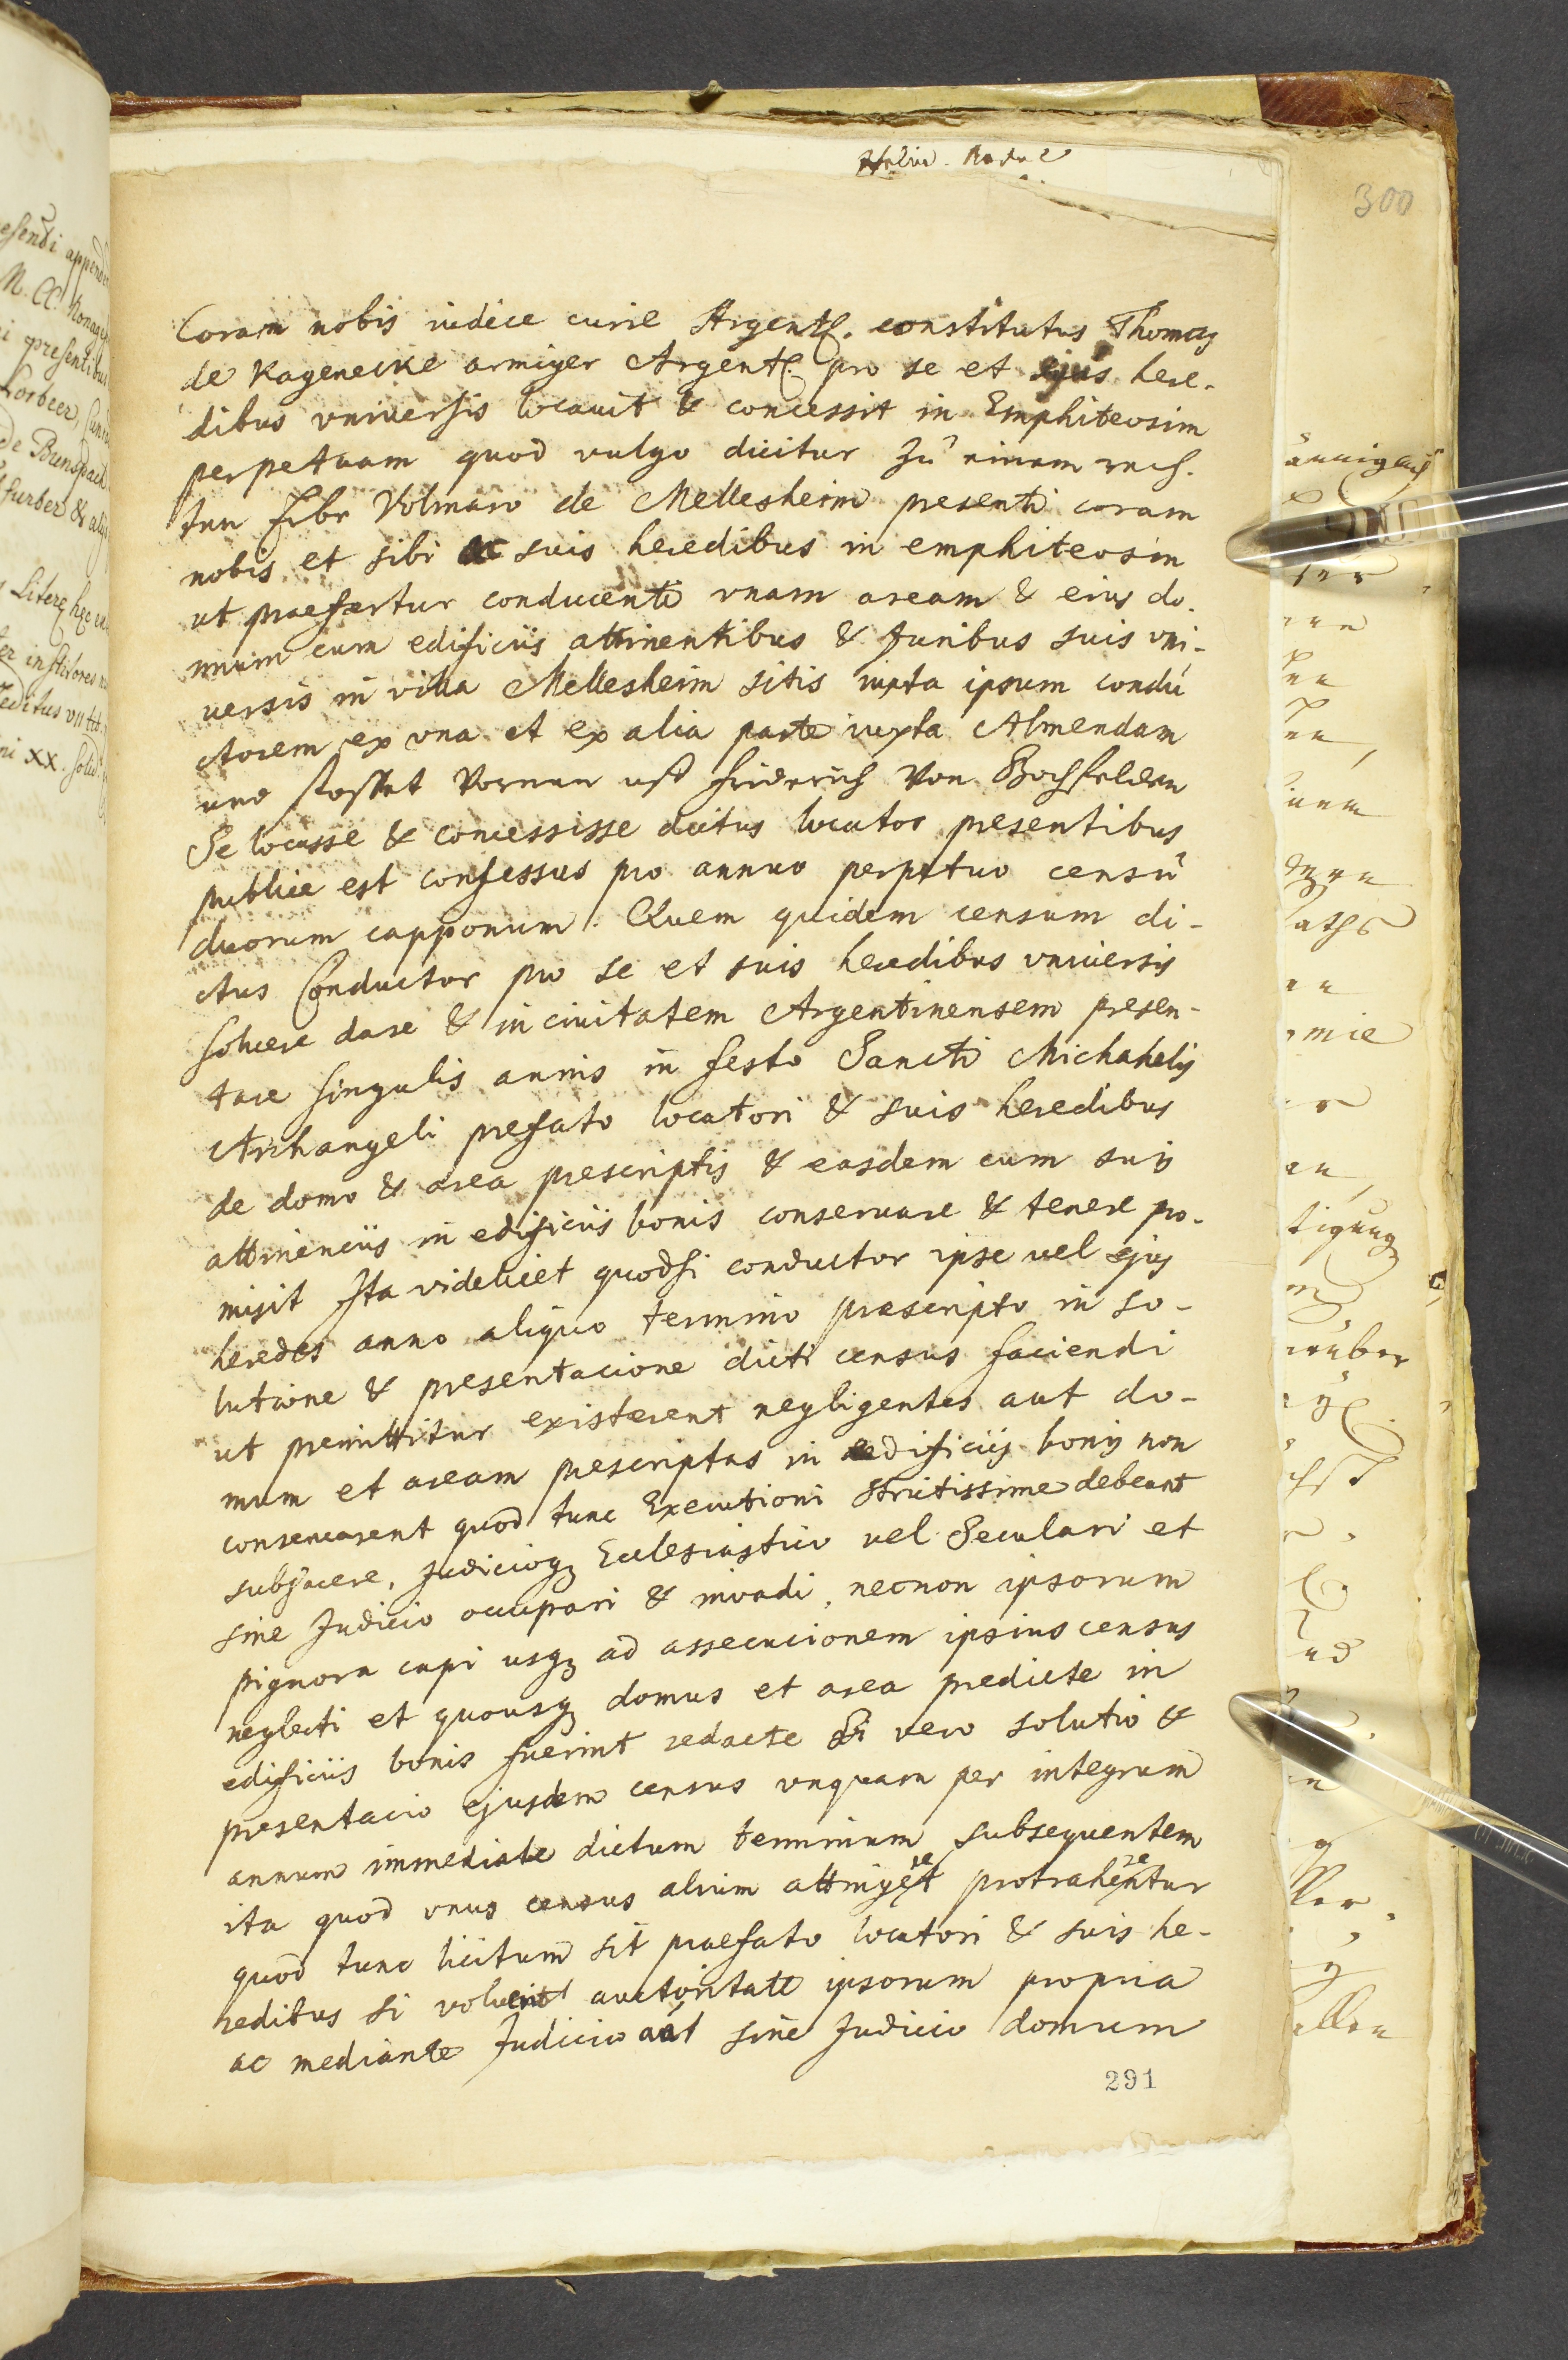 300
Coram nobis iudice curie Argent. constitutus Thomas
de Kageneckhe armiger Argent. pro se et ejus here-
dibus vniuersis locauit & concessit in Emphiteosim
perpetuam quod vulgo dicitur zu einem rech-
ten Erbe Volmaro de Mellesheim presenti coram
nobis et sibi ac suis heredibus in emphiteosin
ut praefertur conducenti vnam aream & eius do-
mum cum edificiis attinentibus & Juribus suis vni-
uersis in villa Mellesheim sitis iuxta ipsum condu
ctorem ex vna et ex alia parte iuxta Almendam
und stosset Vornen uff Friderich Von Bochfelden
Se locasse & concessisse dictus locator presentibus
publice est confessus pro annuo perpetuo censu
duorum capponum. Quem quidem censum di-
ctus Conductor pro se et suis heredibus vniuersis
soluere dare & in ciuitatem Argentinensem presen-
tare singulis annis in festo Sancti Michahelis
Archangeli prefato locatori & suis heredibus
de domo & area prescriptis & easdem cum suis
attinenciis in edificiis bonis conseruare & tenere pro-
misit Ita videlicet quodsi conductor ipse uel ejus
heredes anno aliquo termino praescripto in so-
lutione & presentacione dicti census faciendi
ut premittitur existerent negligentes aut do-
mum et aream prescriptas in edificiis bonis non
conseruarent quod tunc Executioni strictissime debeant
subjacere, Judicioq Ecclesiastico uel Seculari et
sine Judicio occupari & inuadi, necnon ipsorum
pignora capi usq ad assecucionem ipsius census
neglecti et quousq domus et area predicte in
edificiis bonis fuerint redacte Si vero solutio &
presentacio ejusdem census vnquam per integrum
annum immediate dictum terminum subsequentem
ita quod vnus census alium attingeret protraheretur
quod tunc licitum sit praefato locatori & suis he-
redibus si voluerint auctoritate ipsorum propria
ac mediante Judicio aut sine Judicio domum
291